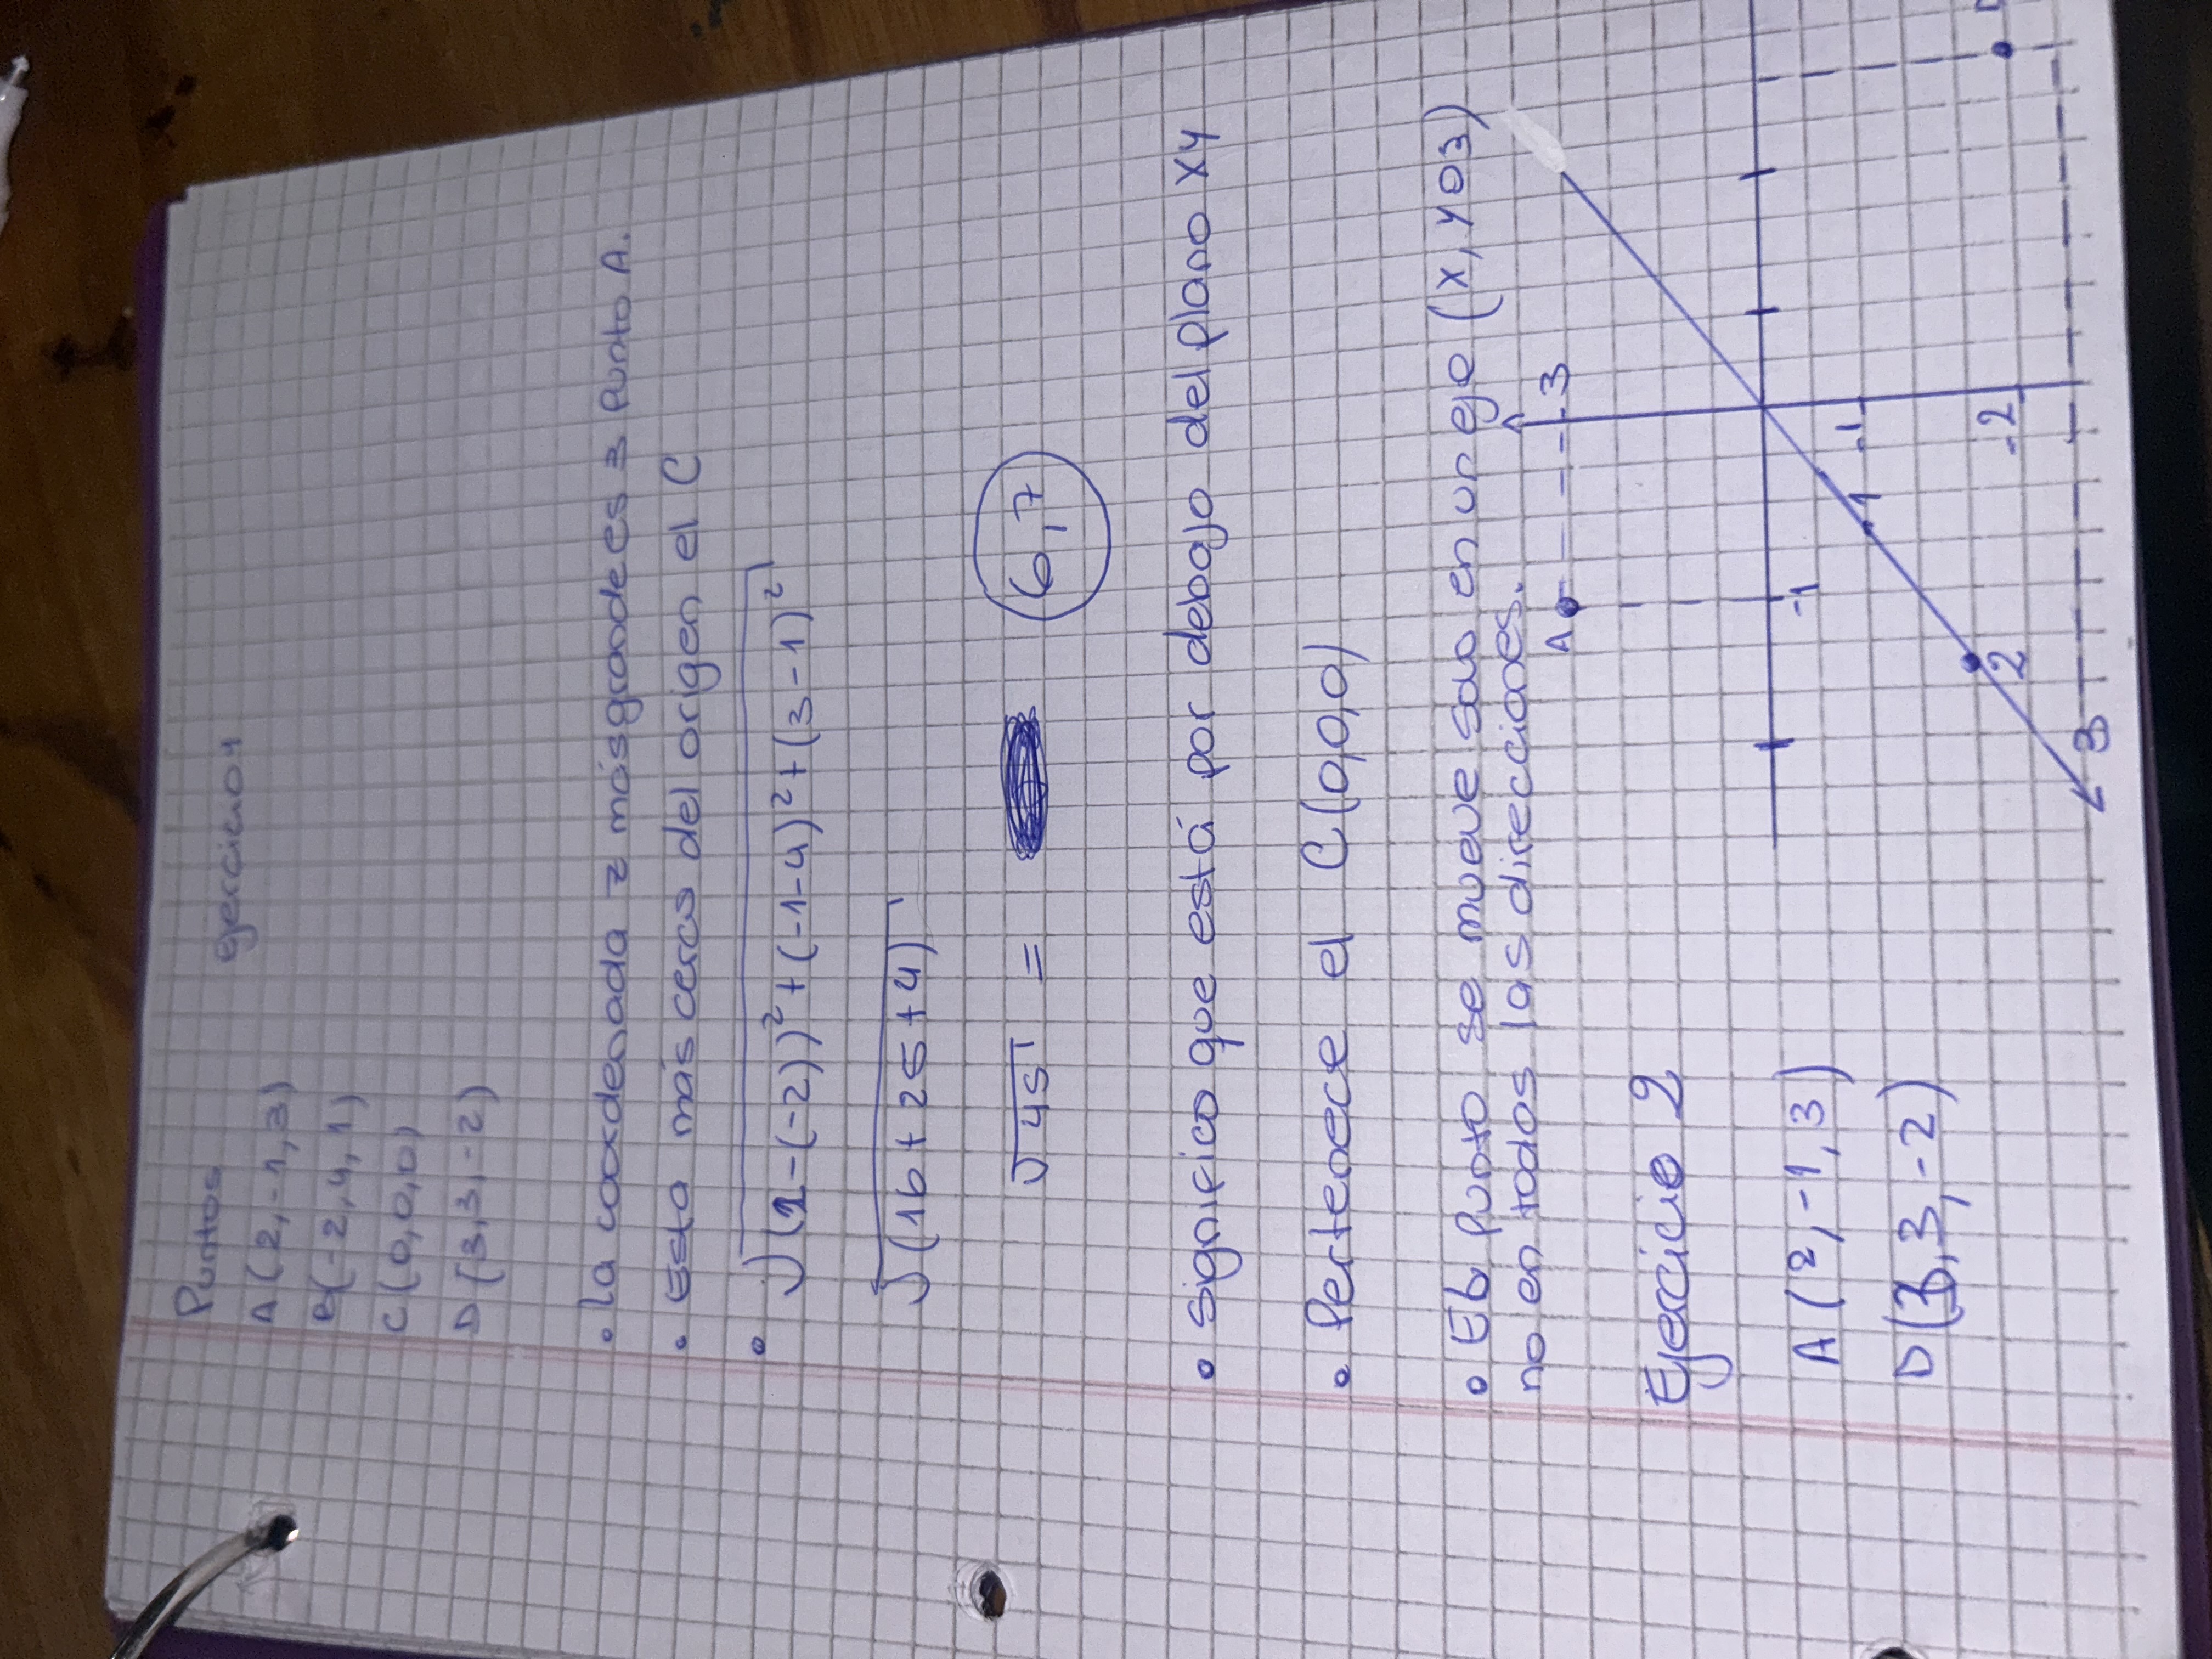 Puntos ejercicio 1
A (2,-1,3)
B(-2,4,1)
C (0,0,0)
D (3,3,-2)
• La coordenada z más grande es 3 punto A.
• Esta más cerca del origen el C
• √(2-(-2))²+(-1-4)²+(3-1)²
√(16+25+4)
√45 = 6,7
• Significa que está por debajo del plano XY
• Pertenece el C(0,0,0)
• El punto se mueve solo en un eje (x, y o z)
no en todas las direcciones.
Ejercicio 2
A (2,-1,3)
D (3,3,-2)
3
A
-1
-1
1
2
-2
3